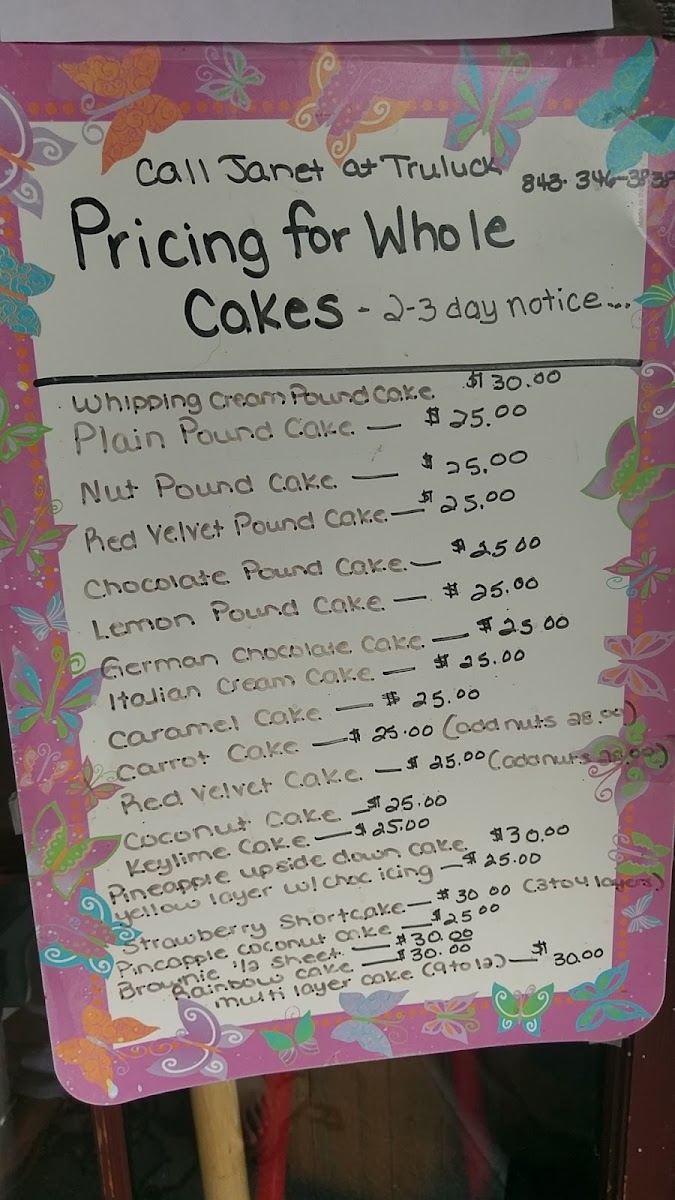 Call Janet at Truluck 843-346-3838
Pricing for Whole
Cakes - 2-3 day notice...
Whipping Cream Pound Cake $30.00
Plain Pound Cake — $25.00
Nut Pound Cake — $25.00
Red Velvet Pound Cake — $25.00
Chocolate Pound Cake — $25 00
Lemon Pound Cake — $25.00
German Chocolate Cake — $25 00
Italian Cream Cake — $25.00
Caramel Cake — $25.00
Carrot Cake — $25.00 (add nuts 28.00)
Red Velvet Cake — $25.00 (add nuts 28.00)
Coconut Cake — $25.00
Keylime Cake — $25.00
Pineapple upside down cake $30.00
yellow layer w/choc icing — $25.00
Strawberry Shortcake — $30 00 (3 to 4 layers)
Pineapple coconut cake — $25 00
Brownie 1/2 sheet — $30.00
Rainbow cake — $30.00
multi layer cake (9 to 12) — $30.00